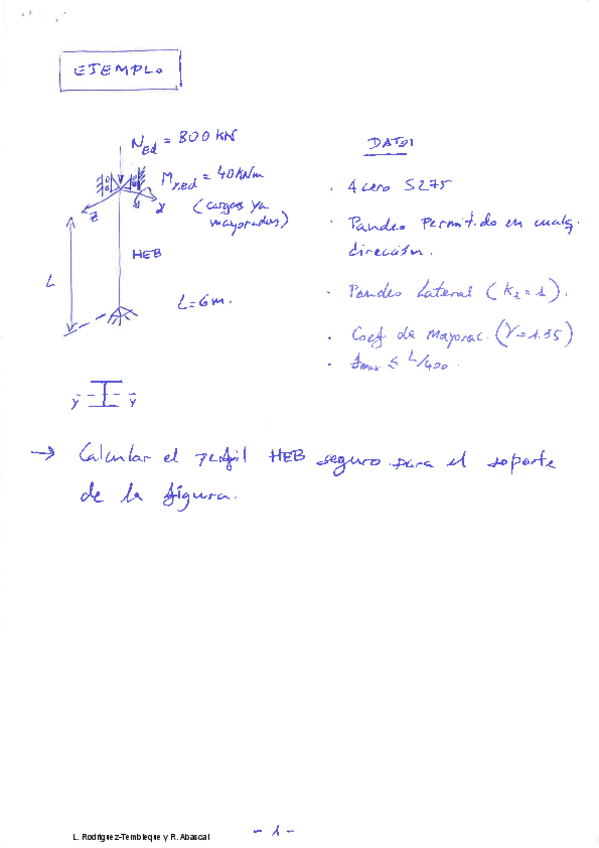 EJEMPLO
N_Ed = 800 kN
M_y,Ed = 40 kNm
(cargas ya
mayoradas)
z
y
HEB
L
L = 6 m.
y y
DATOS
. Acero S275
. Pandeo Permitido en cualq.
dirección.
- Pandeo Lateral (K_z = 1).
. Coef. de Mayorac. (γ = 1.35)
. f_max ≤ L/400.
→ Calcular el perfil HEB seguro para el soporte
de la figura.
L. Rodríguez-Tembleque y R. Abascal
- 1 -